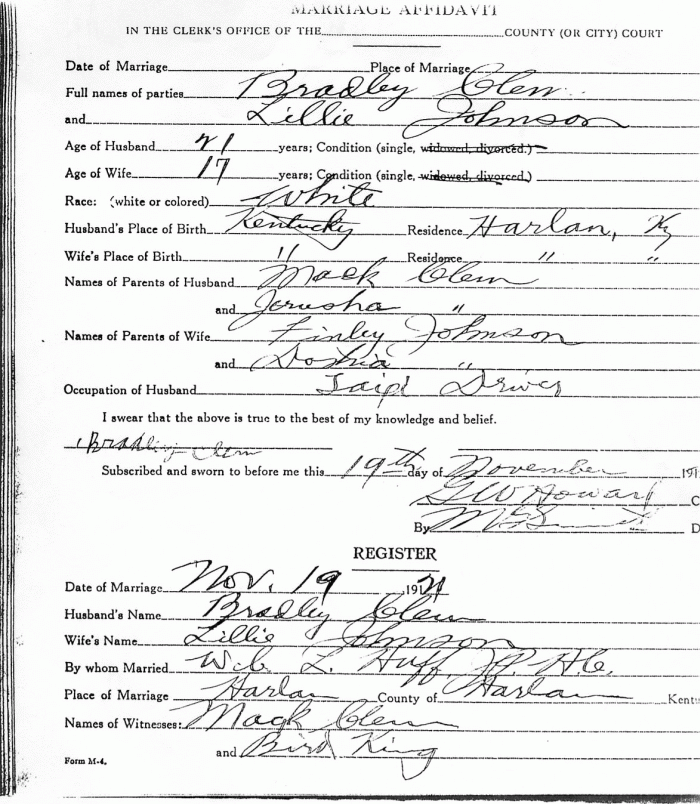 MARRIAGE AFFIDAVIT
IN THE CLERK'S OFFICE OF THE COUNTY (OR CITY) COURT
Date of Marriage Place of Marriage
Full names of parties Bradley Clem
and Lillie Johnson
Age of Husband 21 years; Condition (single, widowed, divorced.)
Age of Wife 17 years; Condition (single, widowed, divorced.)
Race: (white or colored) White
Husband's Place of Birth Kentucky Residence Harlan, Ky
Wife's Place of Birth " Residence " "
Names of Parents of Husband Mack Clem
and Jerusha "
Names of Parents of Wife Finley Johnson
and Doshia "
Occupation of Husband Driver
I swear that the above is true to the best of my knowledge and belief.
Bradley Clem
Subscribed and sworn to before me this 19th day of November 191
G W Howard C
By D
REGISTER
Date of Marriage Nov. 19 191
Husband's Name Bradley Clem
Wife's Name Lillie Johnson
By whom Married L. Huff J.P. H.C.
Place of Marriage Harlan County of Harlan Kent
Names of Witnesses: Mack Clem
and Bird King
Form M-4.